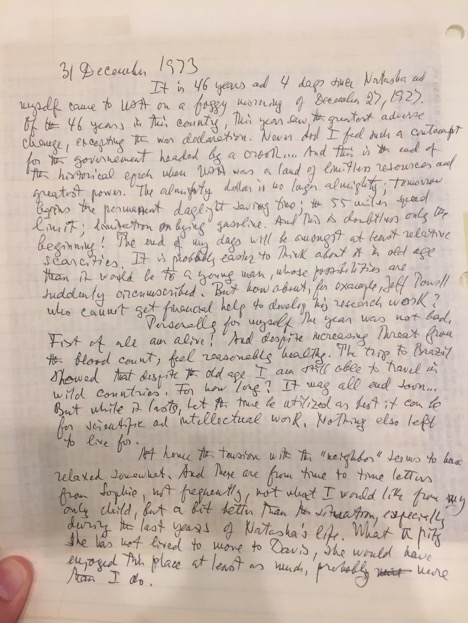 31 December 1973
It is 46 years ad 4 days since Natasha ad
myself came to USA on a foggy morning of December 27, 1927.
Of th 46 years in this country, this year saw the greatest adverse
change, excepting the war declaration. Never did I feel such a contempt
for the government headed by a crook... And this is the end of
the historical epoch when USA was a land of limitless resources and
greatest power. The almighty dollar is no longer almighty; tomorrow
begins the permanent daylight saving time; the 55 miles speed
limit; limitation on buying gasoline. And this is doubtless only the
beginning! The end of my days will be amongst at least relative
scarcities. It is probably easier to think about it in old age
than it would be to a young man, whose possibilities are
suddenly circumscribed. But how about, for example, Jeff Powell
who cannot get financial help to develop his research work?
Personally for myself the year was not bad.
First of all am alive! And despite increasing threat from
th blood count, feel reasonably healthy. The trip to Brazil
showed that despite th old age I am still able to travel in
wild countries. For how long? It may all end soon...
But while it lasts, let the time be utilized as best it can be
for scientific ad intellectual work. Nothing else left
to live for.
At home the tension with the "neighbor" seems to have
relaxed somewhat. And there are from time to time letters
from Sophie, not frequently, not what I would like from my
only child, but a bit better than the situation, especially
during the last years of Natasha's life. What a pity
she has not lived to move to Davis, she would have
enjoyed this place at least as much, probably more
than I do.